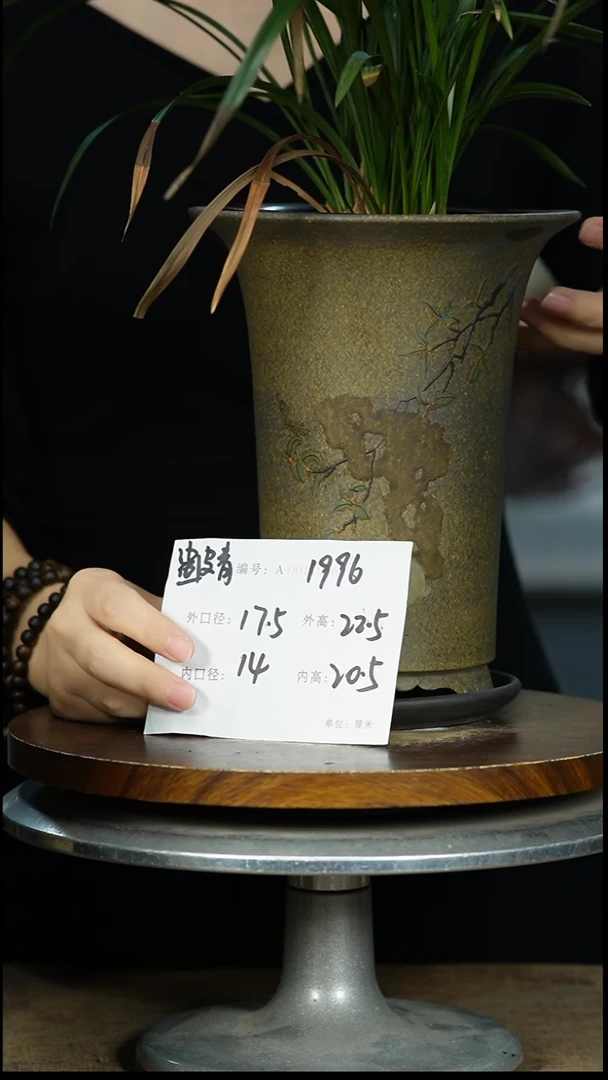 编号: A 1996
外口径: 17.5 外高: 22.5
内口径: 14 内高: 20.5
单位: 厘米